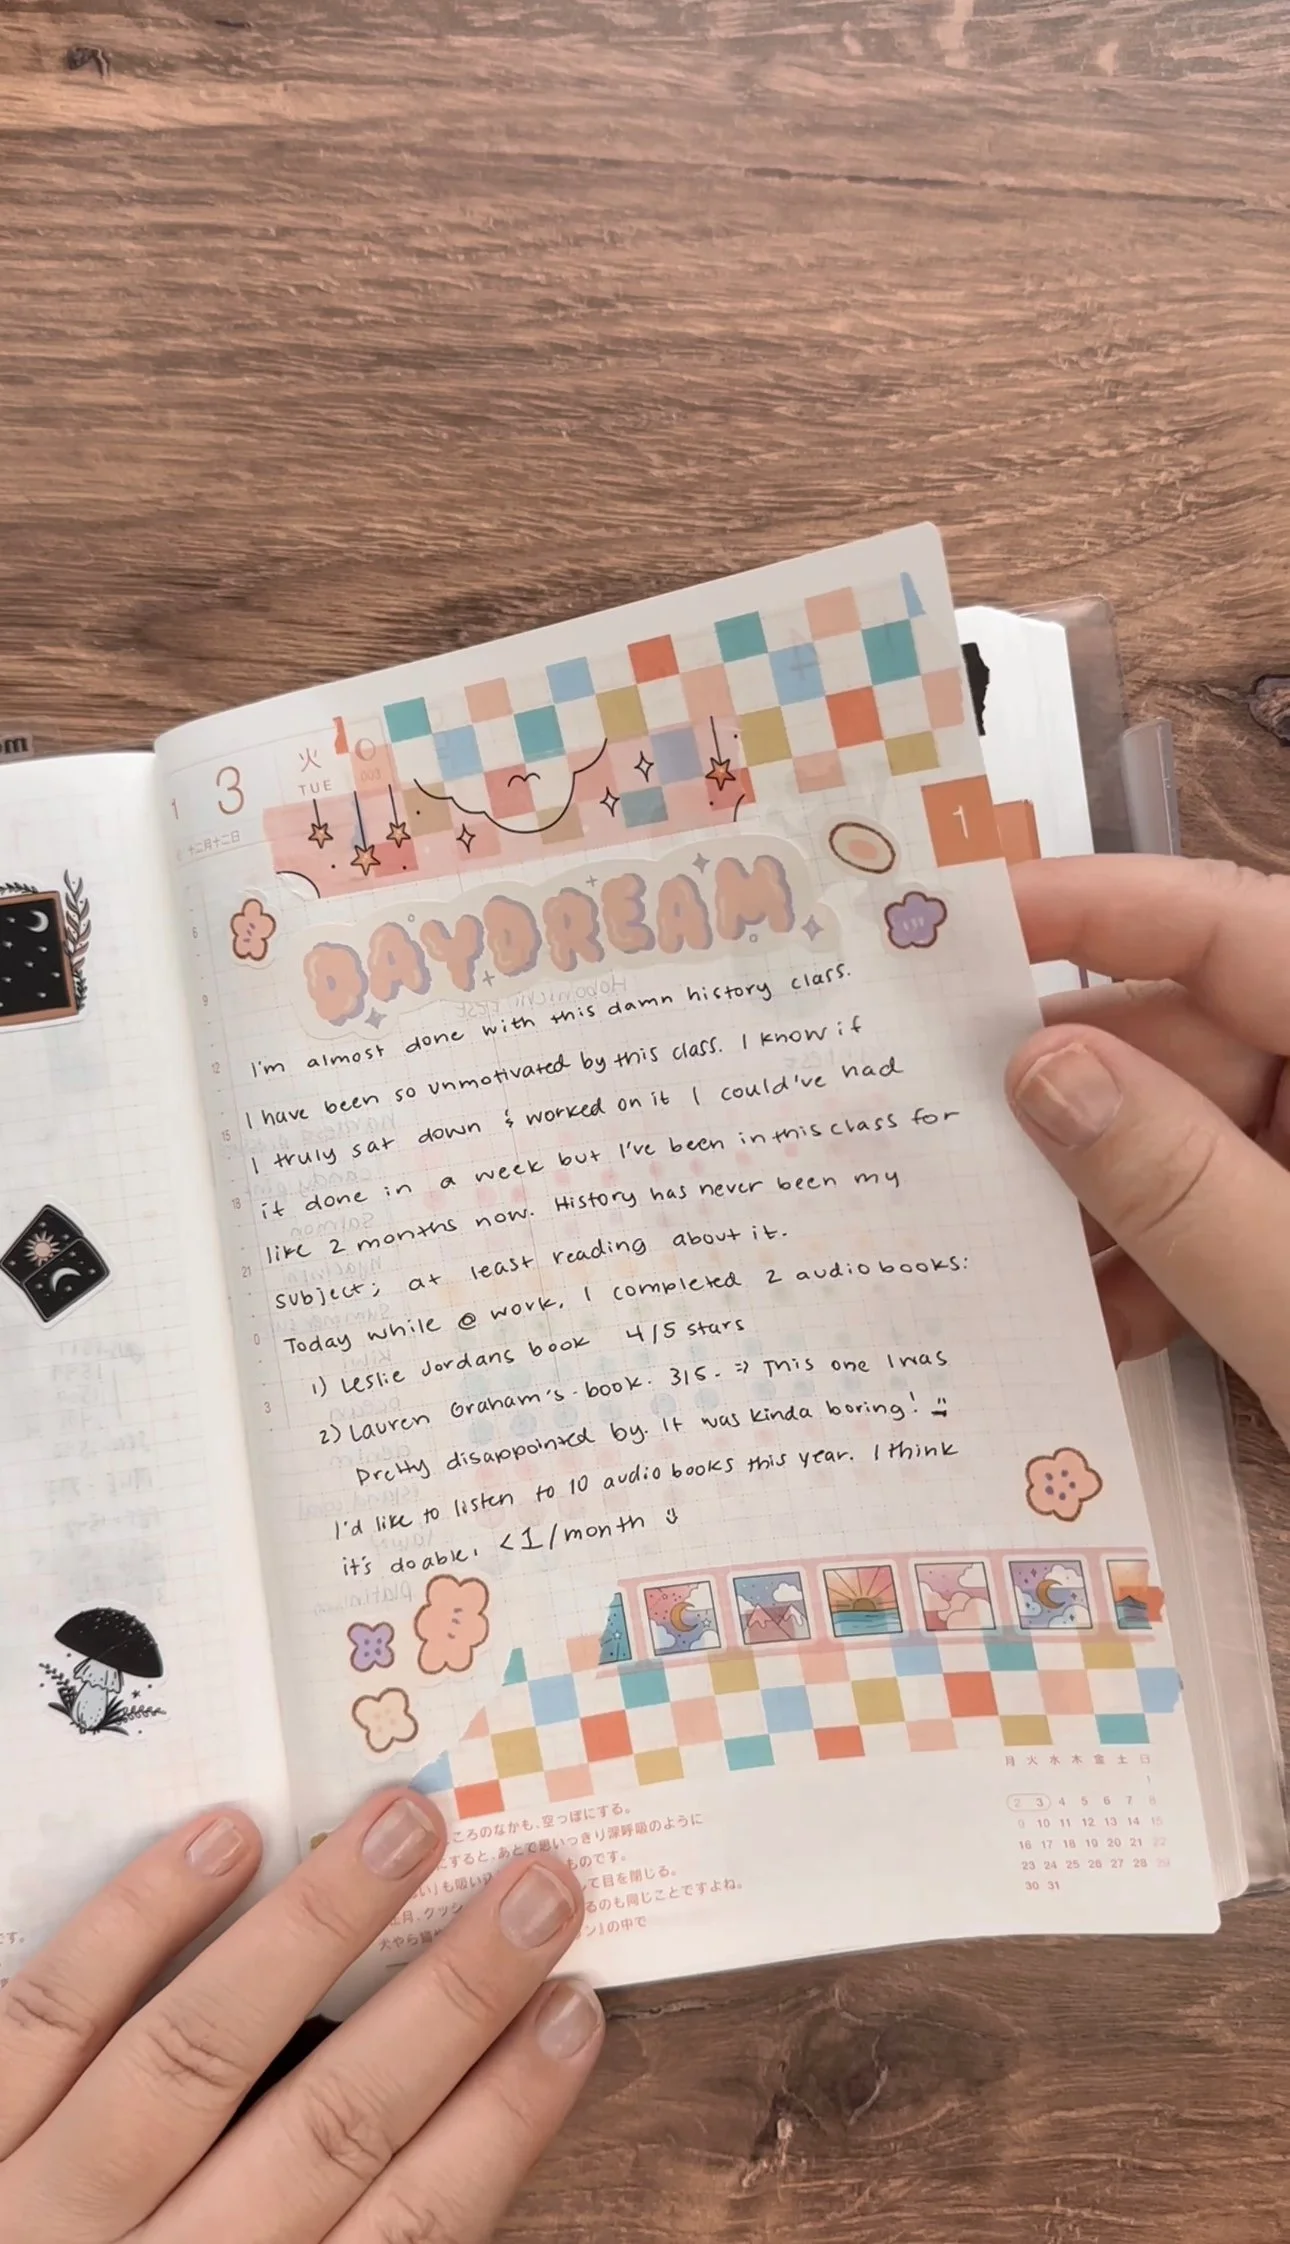 om
1
3
火
TUE
十二月十二日
1
DAYDREAM
6
9
12
15
18
21
0
3
I'm almost done with this damn history class.
I have been so unmotivated by this class. I know if
I truly sat down & worked on it I could've had
it done in a week but I've been in this class for
like 2 months now. History has never been my
subject; at least reading about it.
Today while @ work, I completed 2 audiobooks:
1) Leslie Jordans book 4/5 stars
2) Lauren Graham's book. 3/5. => This one I was
Pretty disappointed by. It was kinda boring!
I'd like to listen to 10 audio books this year. I think
it's doable. <1/month
ころのなかも、空っぽにする。
にすると、あとで思いっきり深呼吸のように
い」も吸い
ものです。
して目を閉じる。
正月、クッシ
るのも同じことですよね。
犬やら猫や
ン』の中で
す。
月 火 水 木 金 土 日
1
2 3 4 5 6 7 8
9 10 11 12 13 14 15
16 17 18 19 20 21 22
23 24 25 26 27 28 29
30 31